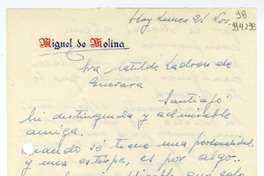 Hoy Lunes 21 Nov.
98
Miguel de Molina
Sra Matilde Ladron de
Guevara
Santiago
Mi distinguida y admirable
amiga.
Cuando se tiene una personalidad
y una estirpe, es por algo..